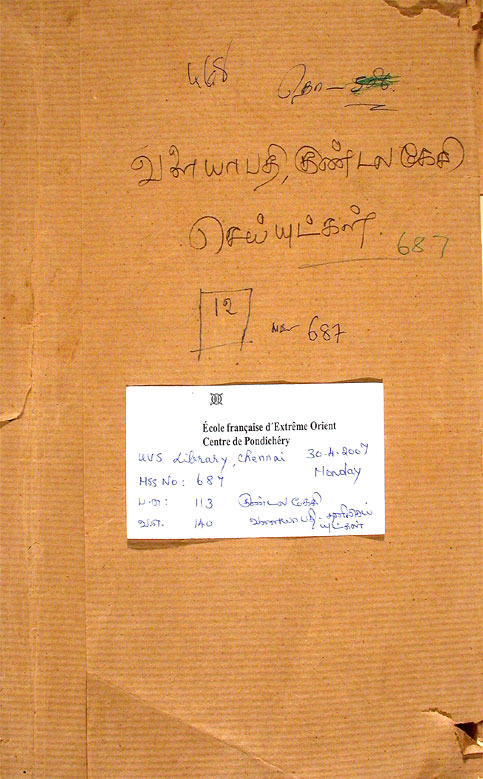 468
தொ -
வளையாபதி, குண்டலகேசி
செய்யுட்கள்.
687
12
687
École française d'Extrême Orient
Centre de Pondichéry
UVS Library, Chennai 30-4-2007
Monday
MSS No: 687
ப.எ: 113 குண்டலகேசி
வ.எ. 140 வளையாபதி - தனிச்செய்
யுட்கள்